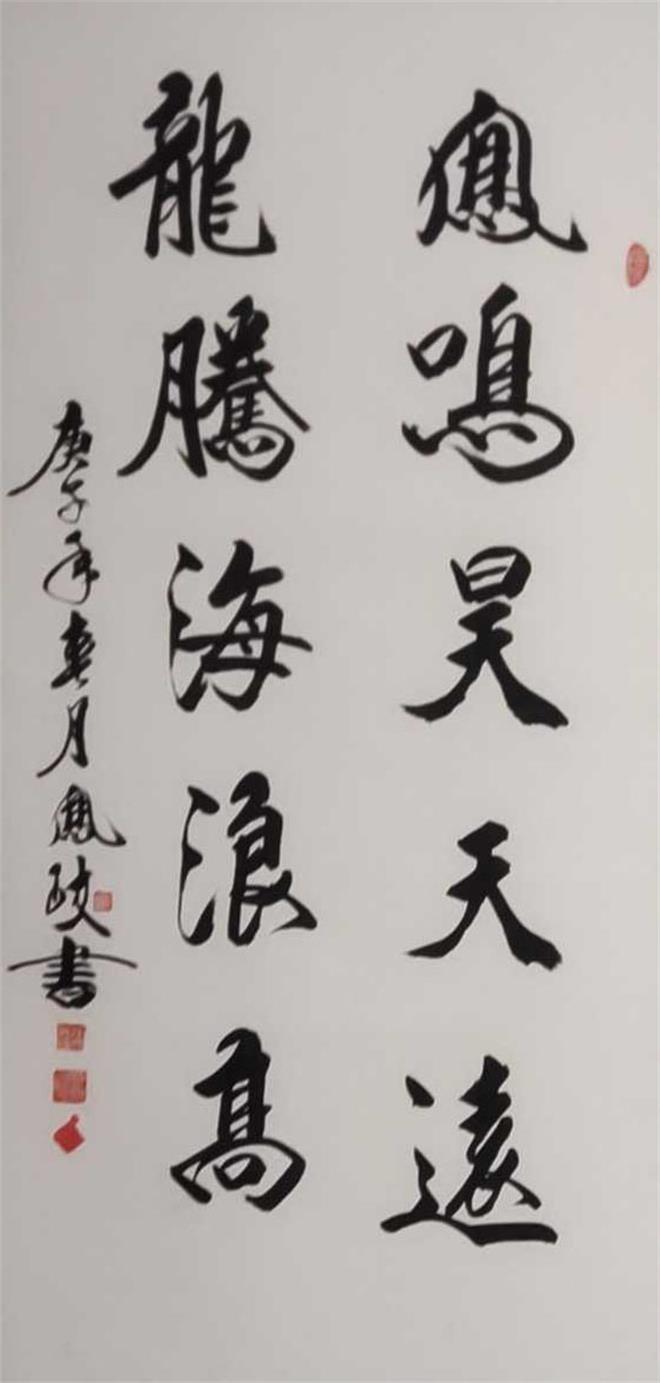 鳳鳴昊天遠
龍騰海浪高
庚子年春月鳳岐書